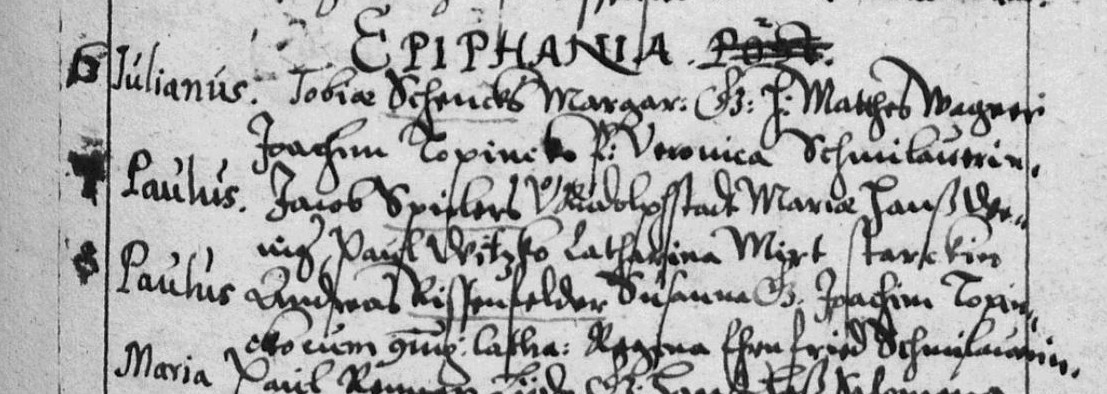 EPIPHANIA. Post.
6 Julianus. Tobiæ Schencks Margar: G: H: Matthes Wagner
Joachim Topincko F: Veronica Schmilauerin.
7 Paulus. Jacob Spielers Rudolpsstadt Mariæ Hanß Wer=
nig, Paul Witzko Catharina Mirt starckin
8 Paulus Andreas Rissenfelder Susanna G. Joachim Topin=
cko cum Catha: Regina Ehrnfried Schmilauerin.
Maria Paul